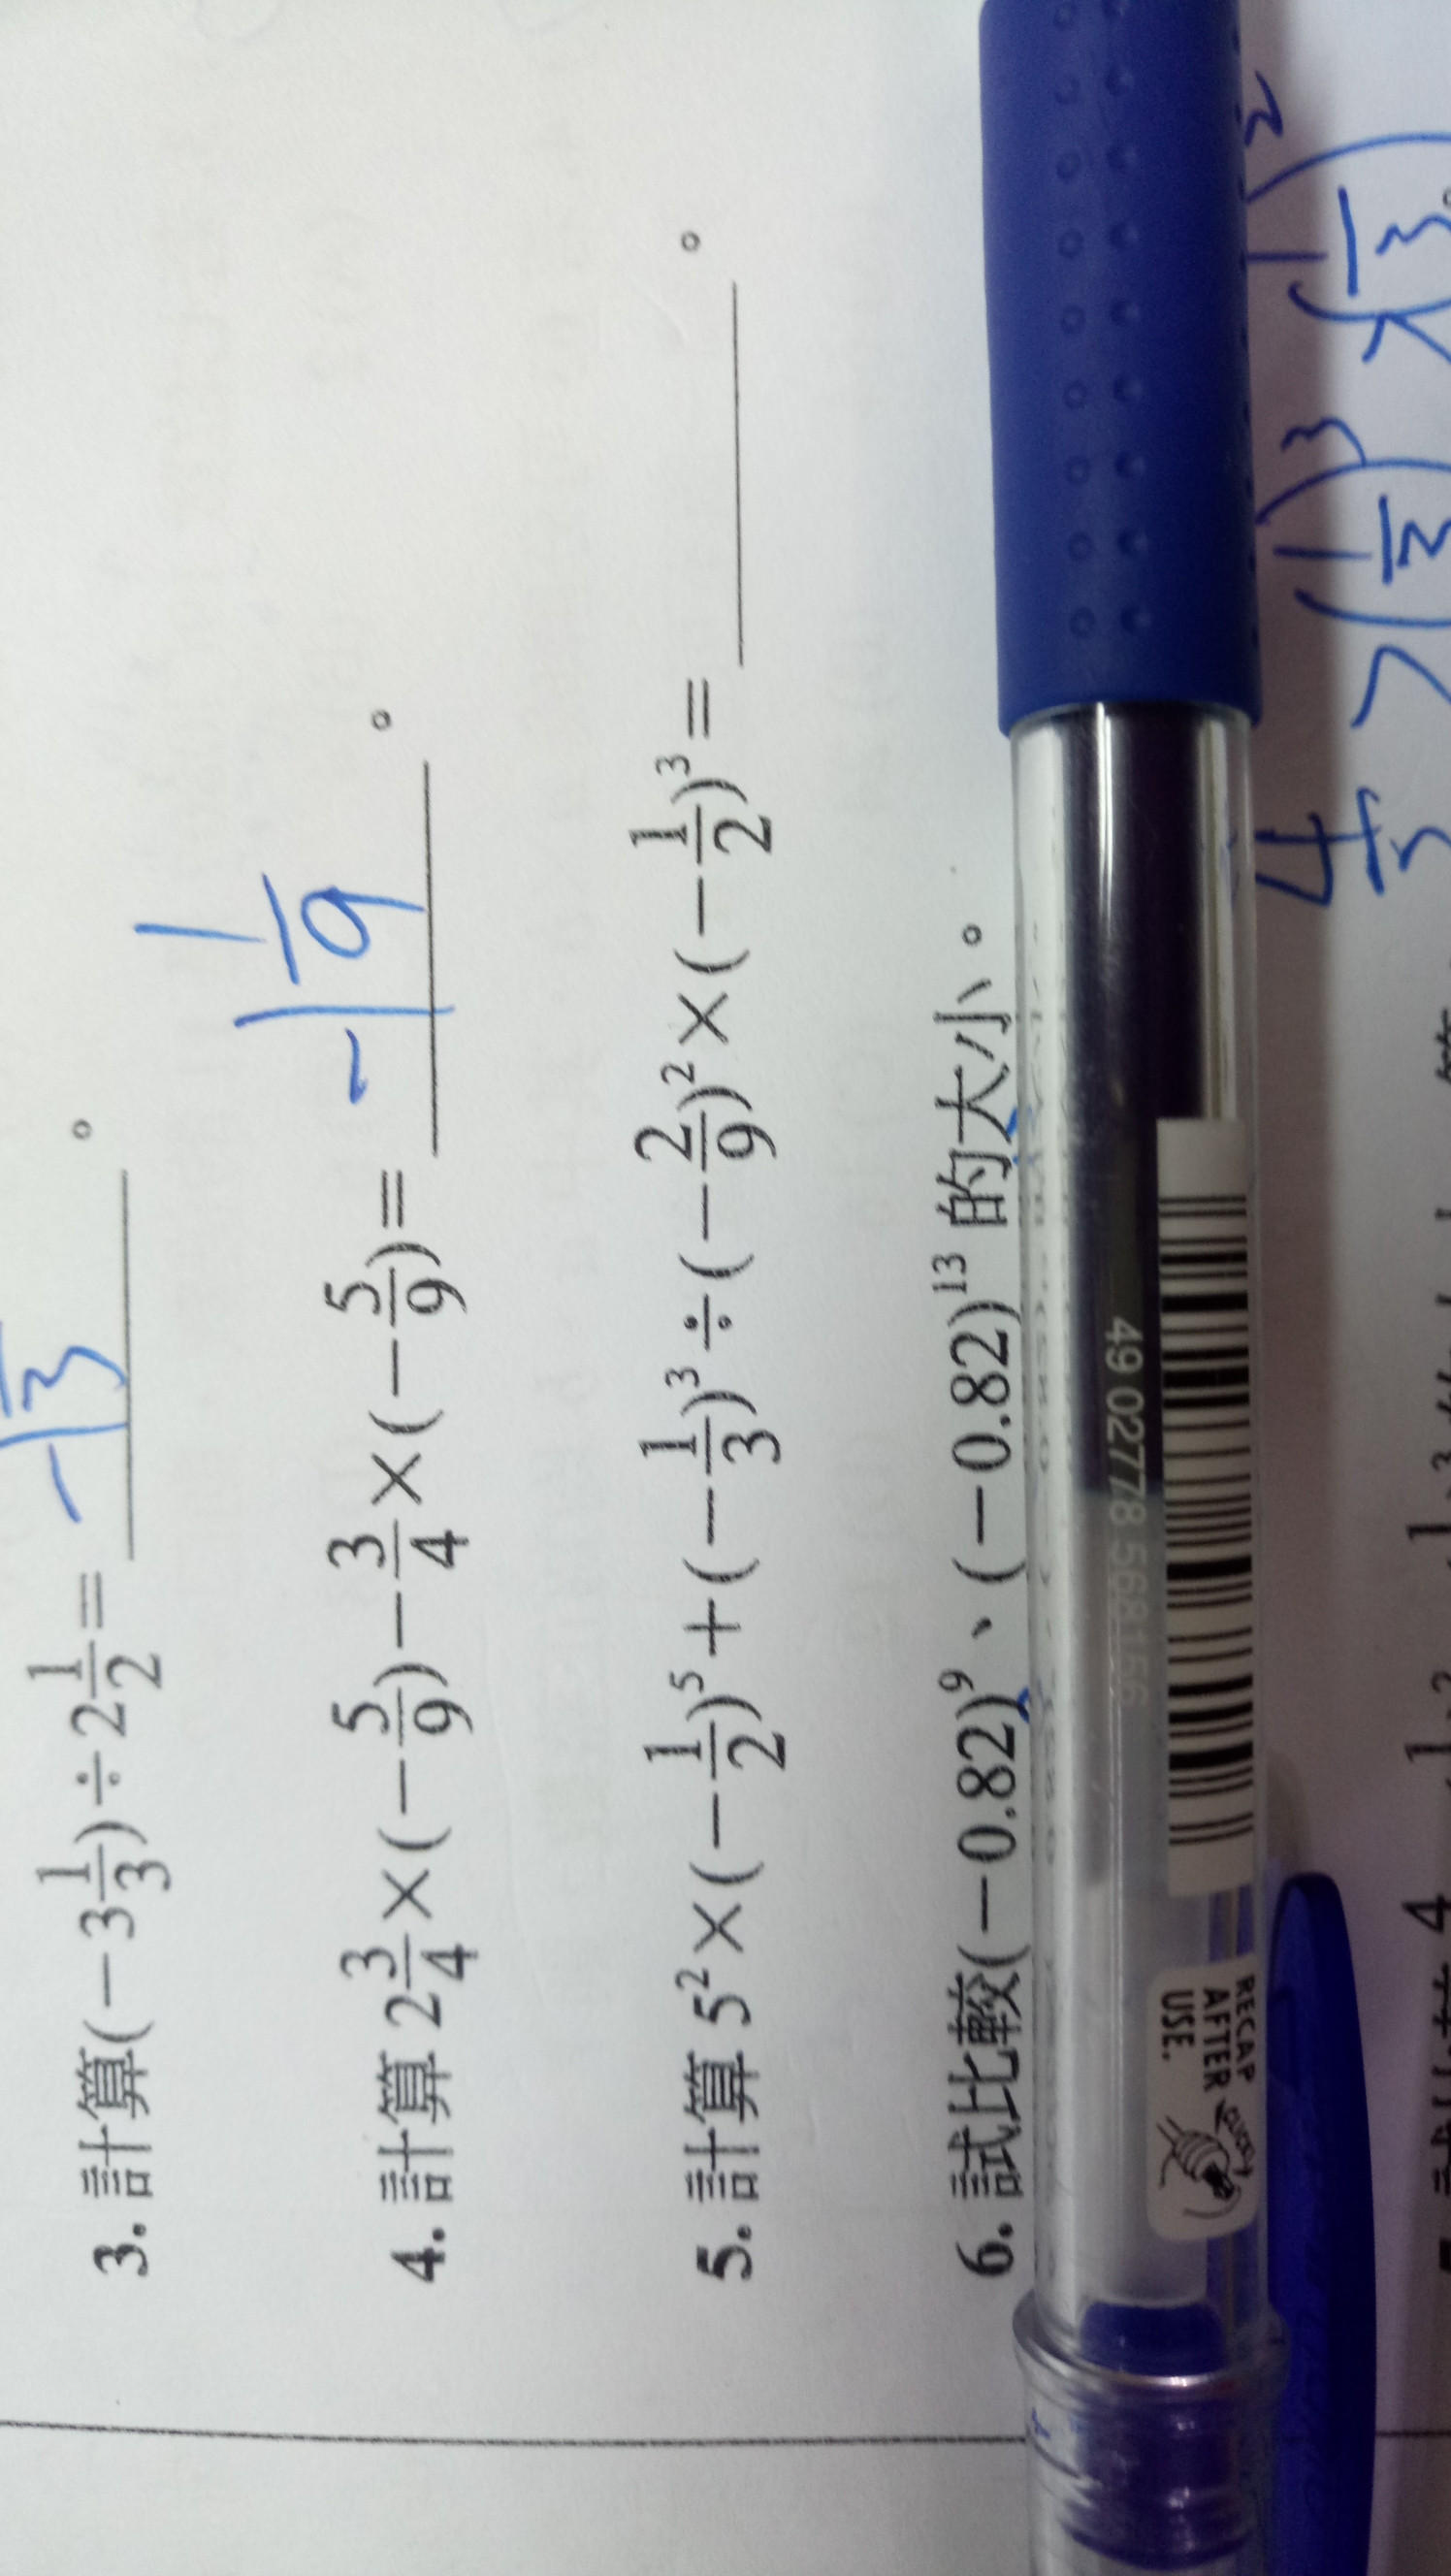 3. 計算(－3 1/3)÷2 1/2＝ －1 1/3 。
4. 計算 2 3/4×(－5/9)－3/4×(－5/9)＝ －1 1/9 。
5. 計算 5²×(－1/2)⁵＋(－1/3)³÷(－2/9)²×(－1/2)³＝ 。
6. 試比較(－0.82)⁹、(－0.82)¹³ 的大小。
49 02778 568156
RECAP
AFTER
USE.
CLICK!